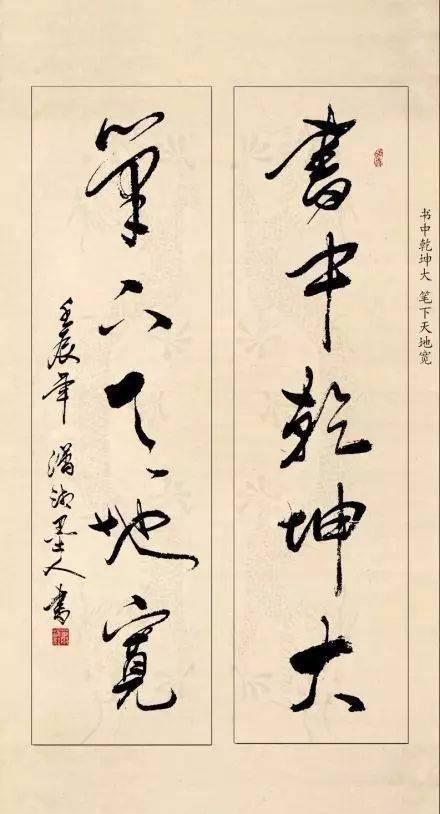 书中乾坤大 笔下天地宽
書中乾坤大
筆下天地寬
壬辰年 墨人書